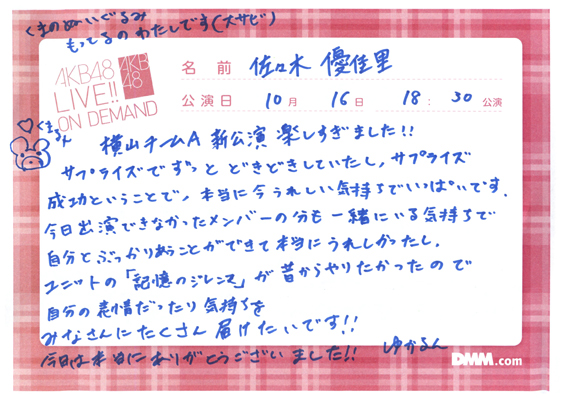 くまのぬいぐるみ
もってるのわたしです(大サビ)
AKB48
LIVE!!
ON DEMAND
AKB
48
名前 佐々木 優佳里
公演日 10月 16日 18:30公演
♡くまるん
横山チームA 新公演 楽しすぎました!!
サプライズでずっと どきどきしていたし、サプライズ
成功ということで、本当に今うれしい気持ちでいっぱいです。
今日出演できなかったメンバーの分も一緒にいる気持ちで
自分とぶっかりあうことができて本当にうれしかったし、
ユニットの「記憶のジレンマ」が昔からやりたかったので
自分の表情だったり気持ちを
みなさんにたくさん届けたいです!!
今日は本当にありがとうございました!! ゆかるん
DMM.com